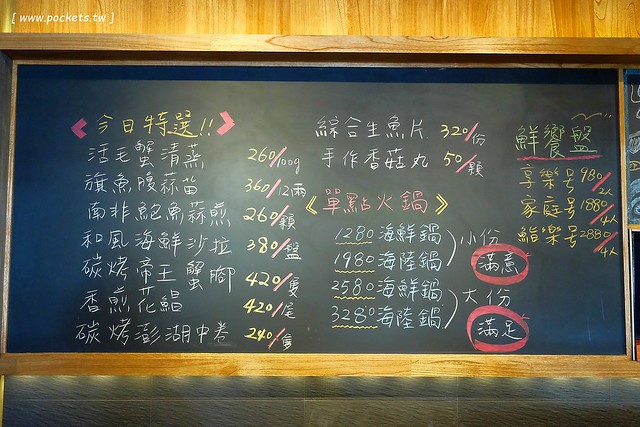 [ www.pockets.tw ]
今日特選!!
活毛蟹清蒸 260/100g
旗魚腹蒜苗 360/12兩
南非鮑魚蒜煎 260/顆
和風海鮮沙拉 380/盤
碳烤帝王蟹腳 420/隻
香煎花鯧 420/尾
碳烤澎湖中卷 240/隻
綜合生魚片 320/份
手作香菇丸 50/顆
《單點火鍋》
1280海鮮鍋
1980海陸鍋
小份
滿意
2580海鮮鍋
3280海陸鍋
大份
滿足
鮮饗盤
享樂号 980/2人
家庭号 1880/4人
鮨樂号 2880/4人